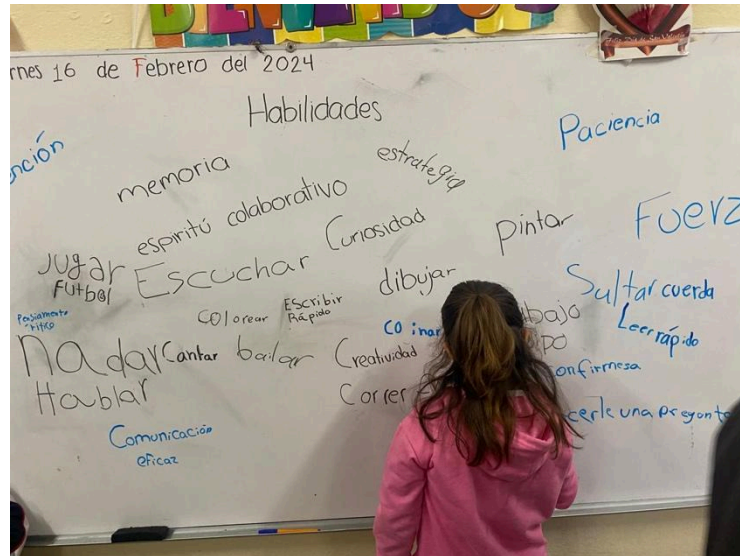 BIENVENIDOS
rnes 16 de Febrero del 2024
Habilidades
Paciencia
nción
memoria
estrategia
espiritú colaborativo
Curiosidad
pintar
Fuerz
Jugar
Futbol
Escuchar
dibujar
Sultar cuerda
Pensiamento
crítico
COlorear
EScribir
Rápido
CO inar
bajo
Leer rápido
po
nadar
Cantar
bailar
Creatividad
onfirmesa
Hablar
Correr
cerle una Pregunt
Comunicación
eficaz